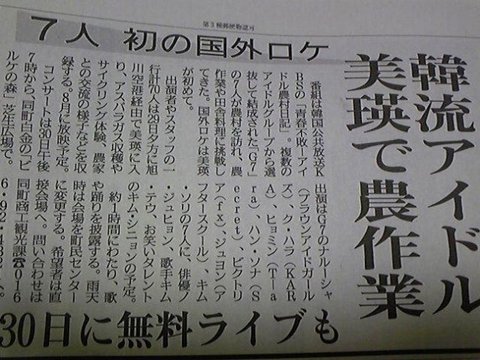 第3種郵便物認可
7人 初の国外ロケ
韓流アイドル
美瑛で農作業
番組は韓国公共放送K
BSの「青春不敗―アイ
ドル農村日記」。複数の
アイドルグループから選
抜して結成された「G7」
の7人が農村を訪れ、農
作業や田舎料理に挑戦し
てきた。国外ロケは美瑛
が初めて。
出演者やスタッフの一
行計70人は29日夕方に旭
川空港経由で美瑛に入
り、アスパラガス収穫や
サイクリング体験、農家
との交流の様子などを収
録する。8月に放映予定。
コンサートは30日午後
7時から、同町白金の「ビ
ルケの森」芝生広場で。
出演はG7のナルーシャ
(ブラウンアイドガール
ズ)、ク・ハラ(KAR
A)、ヒョミン(Tia
ra)、ハン・ソナ(S
ecret)、ビクトリ
ア(fx)、ジュヨン(ア
フタースクール)、キム
・ソリの7人に、俳優ノ
・ジュヒョン、歌手キム
テウ、お笑いタレント
のキム・シニョンの予定。
約1時間にわたり、歌
や踊りを披露する。雨天
時は会場を町民センター
に変更する。希望者は直
接会場へ。問い合わせは
同町商工観光課☎016
6・92・432
30日に無料ライブも